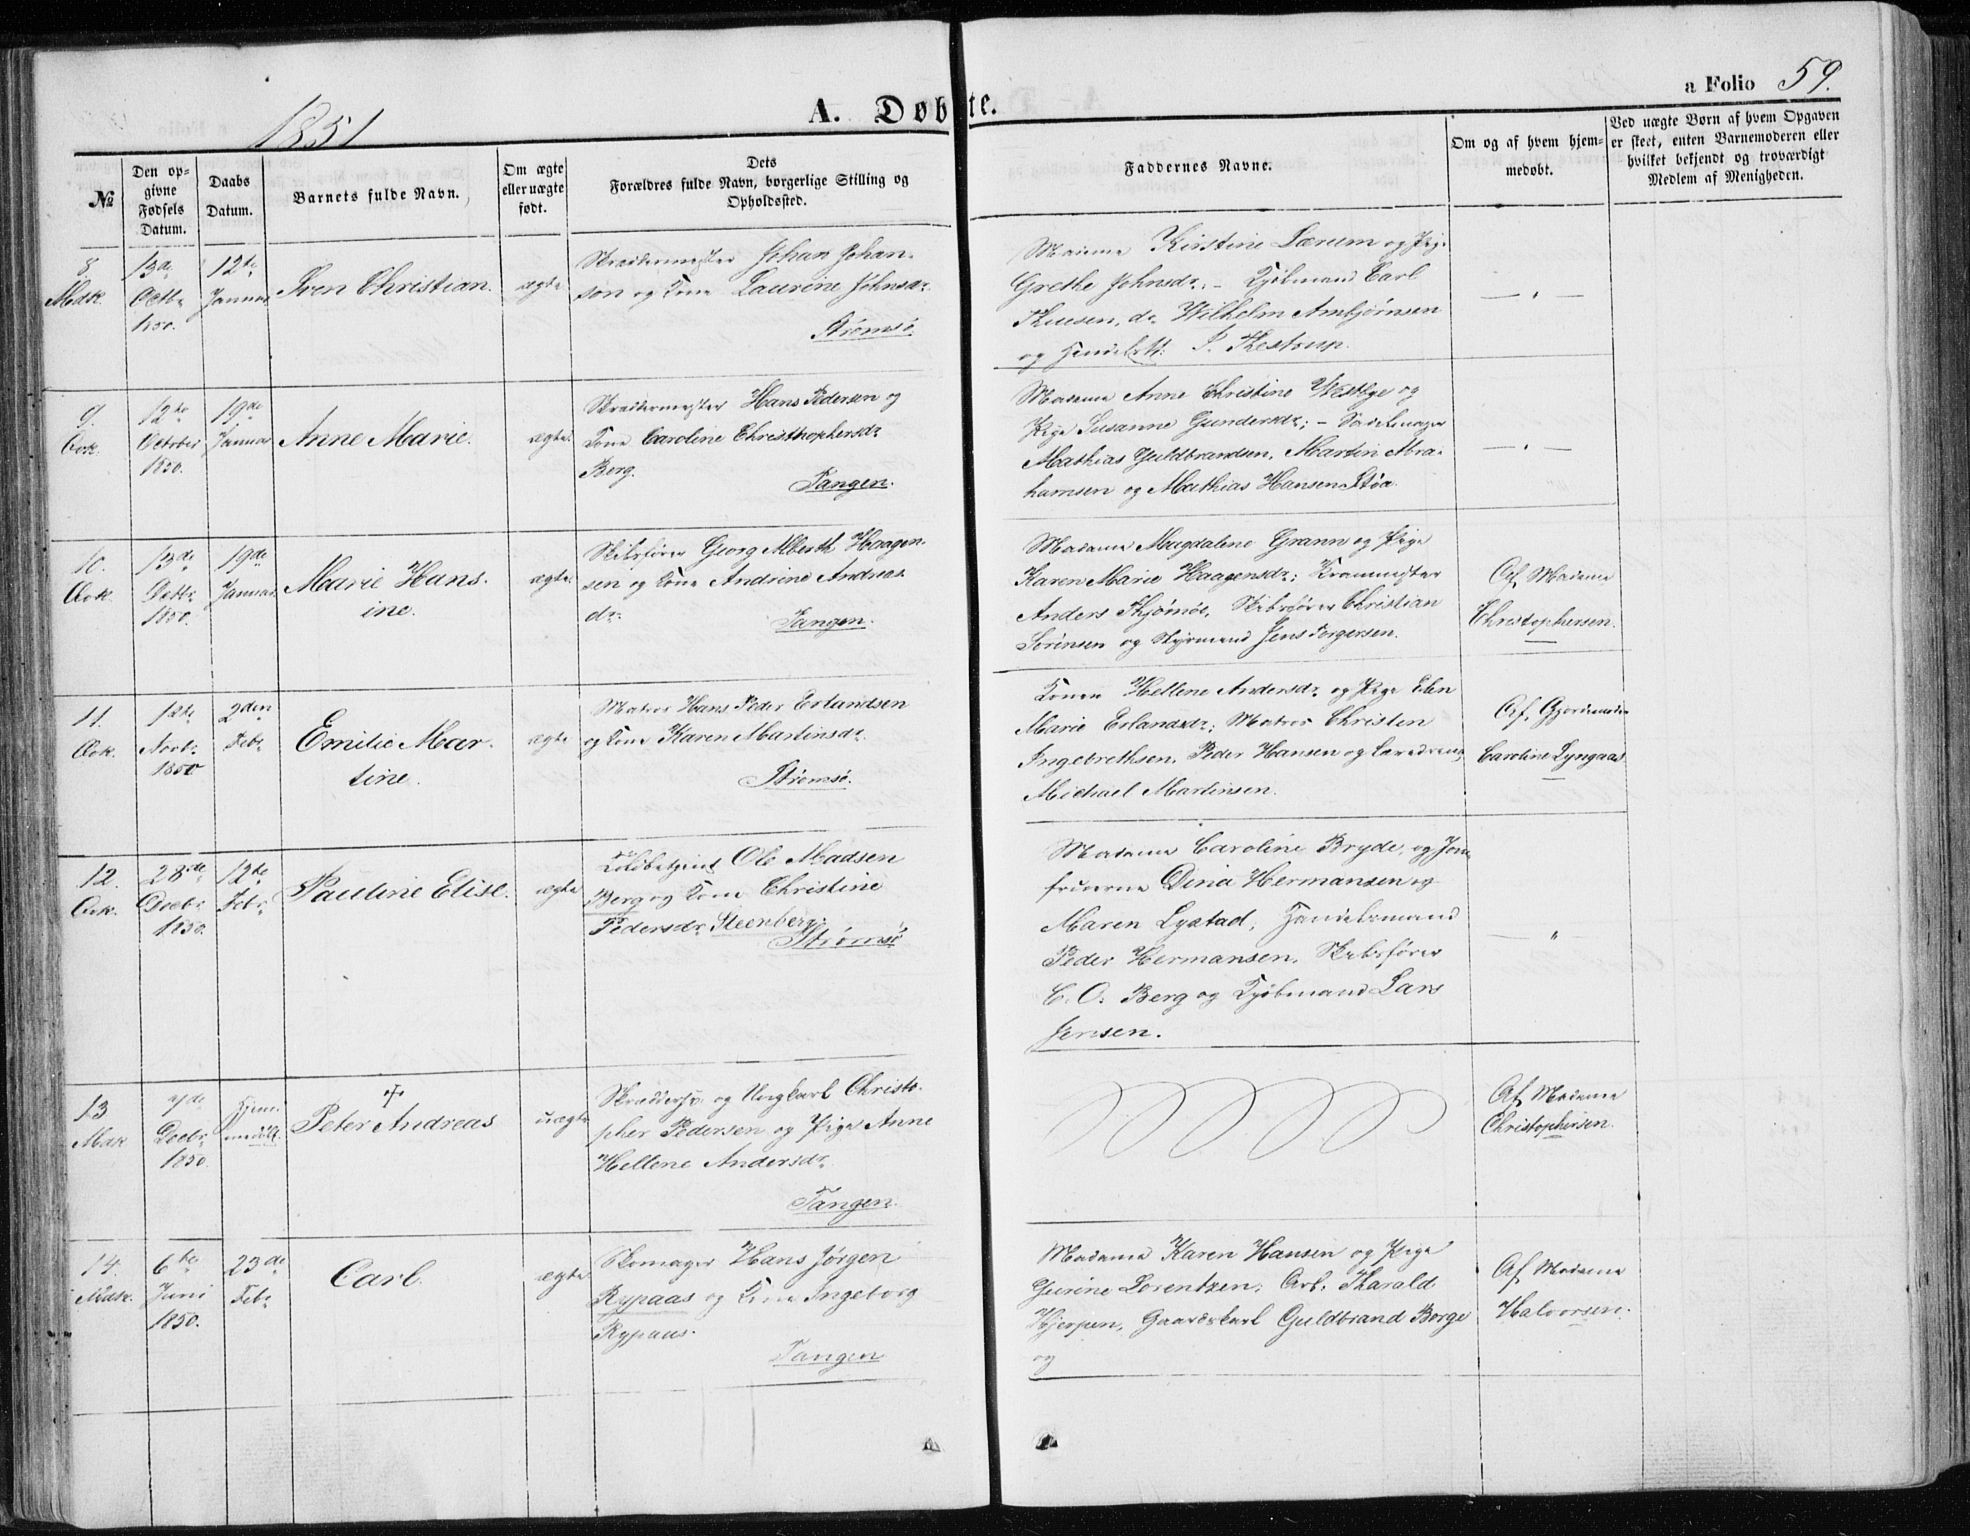 a Folio 59.
1851
A. Døbte.
№
Den opgivne Fødsels Datum.
Daabs Datum.
Barnets fulde Navn.
Om ægte eller uægte født.
Dets Forældres fulde Navn, borgerlige Stilling og Opholdssted.
Faddernes Navne.
Om og af hvem hjemmedøbt.
Ved uægte Børn af hvem Opgaven er skeet, enten Barnemoderen eller hvilket bekjendt og troværdigt Medlem af Menigheden.
8.
Mdk.
13de
Octbr
1850.
12te
Januar
Sven Christian.
ægte
Skrædermester Johan Johan-
son og Kone Laurine Johnsdr.
Strømsø.
Madame Kirstine Lærum og Pige
Grethe Johnsdr. – Kjøbmand Carl
Thuesen, do Wilhelm Ambjørnsen
og P. Thestrup.
9.
Qvk.
12te
October
1850.
19de
Januar
Anne Marie.
ægte.
Skrædermester Hans Pedersen og
Kone Caroline Christhophersdr
Berg.
Tangen.
Madame Anne Christine Westbye og
Pige Susanne Gundersdr; – Sadelmager
Mathias Guldbrandsen, Martin Abra-
hamsen og Mathias Hansen Støa.
10.
Qvk.
13de
Octbr
1850.
19de
Januar
Marie Hans-
ine.
ægte.
Skibsfører Georg Alberth Haagen-
sen og Kone Andrine Andreas-
dr.
Tangen.
Madame Magdalene Grann og Pige
Karen Marie Haagensdr; Kranmester
Anders Thjømøe, Skibsfører Christian
Sørensen og Styrmand Jens Torgersen.
Af Madame
Christophersen.
11.
Qvk.
12te
Novbr
1850
2den
Febr
Emilie Mar-
tine.
ægte
Matros Hans Peder Erlandsen
og Kone Karen Martinsdr.
Strømsø.
Konen Hellene Andersdr og Pige Elen
Marie Erlandsdr; Matros Christen
Ingebrethsen, Peder Hansen og Læredreng
Michael Martinsen.
Af Gjordemoder
Caroline Lyngaas
12.
Qvk.
28de
Decbr
1850.
12te
Febr
Pauline Elise.
ægte
Toldbetjent Ole Madsen
Berg og Kone Christine
Pedersdr Steenberg.
Strømsø
Madame Caroline Bryde, og Jom-
fruerne Dina Hermansen og
Maren Lystad, Handelsmand
Peder Hermansen, Skibsfører
C. O. Berg og Kjøbmand Lars
Jensen.
13
Mdk
7de
Decbr
1850.
Hjem-
medøbt.
Peter Andreas
uægte
Skræddersv. og Ungkarl Christo-
pher Pedersen og Pige Anne
Hellene Andersdr.
Tangen.
Af Madame
Christophersen.
14.
Mdk.
6te
Juni
1850.
23de
Febr
Carl.
ægte
Skomager Hans Jørgen
Rypaas og Kone Ingeborg
Rypaas.
Tangen
Madame Karen Hansen og Pige
Gurine Lorentzen; Arb. Tharald
Hjerpen, Gaardskarl Guldbrand Borge
og
Af Madame
Halvorsen.